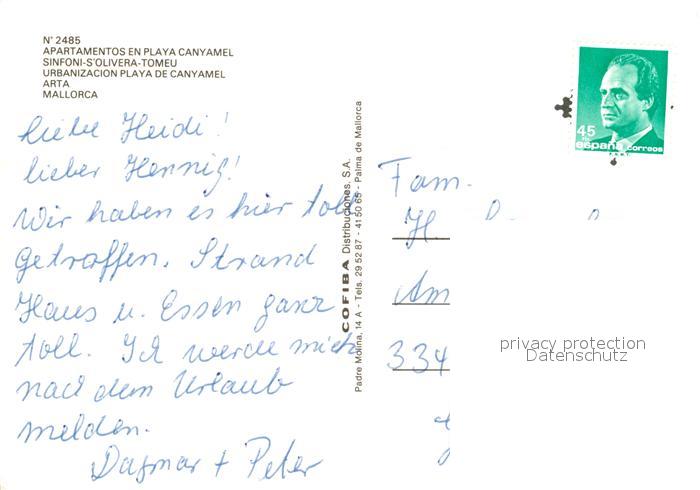 N° 2485
APARTAMENTOS EN PLAYA CANYAMEL
SINFONI-S'OLIVERA-TOMEU
URBANIZACION PLAYA DE CANYAMEL
ARTA
MALLORCA
liebe Heidi!
lieber Hennig!
Wir haben es hier toll
getroffen. Strand
Haus u. Essen ganz
toll. Ich werde mich
nach dem Urlaub
melden.
Dagmar + Peter
COFIBA Distribuciones, S.A.
Padre Molina, 14 A - Tels. 29 52 87 - 41 50 65 - Palma de Mallorca
45
españa correos
F.N.M.T.
Fam.
H.
Am
334
privacy protection
Datenschutz